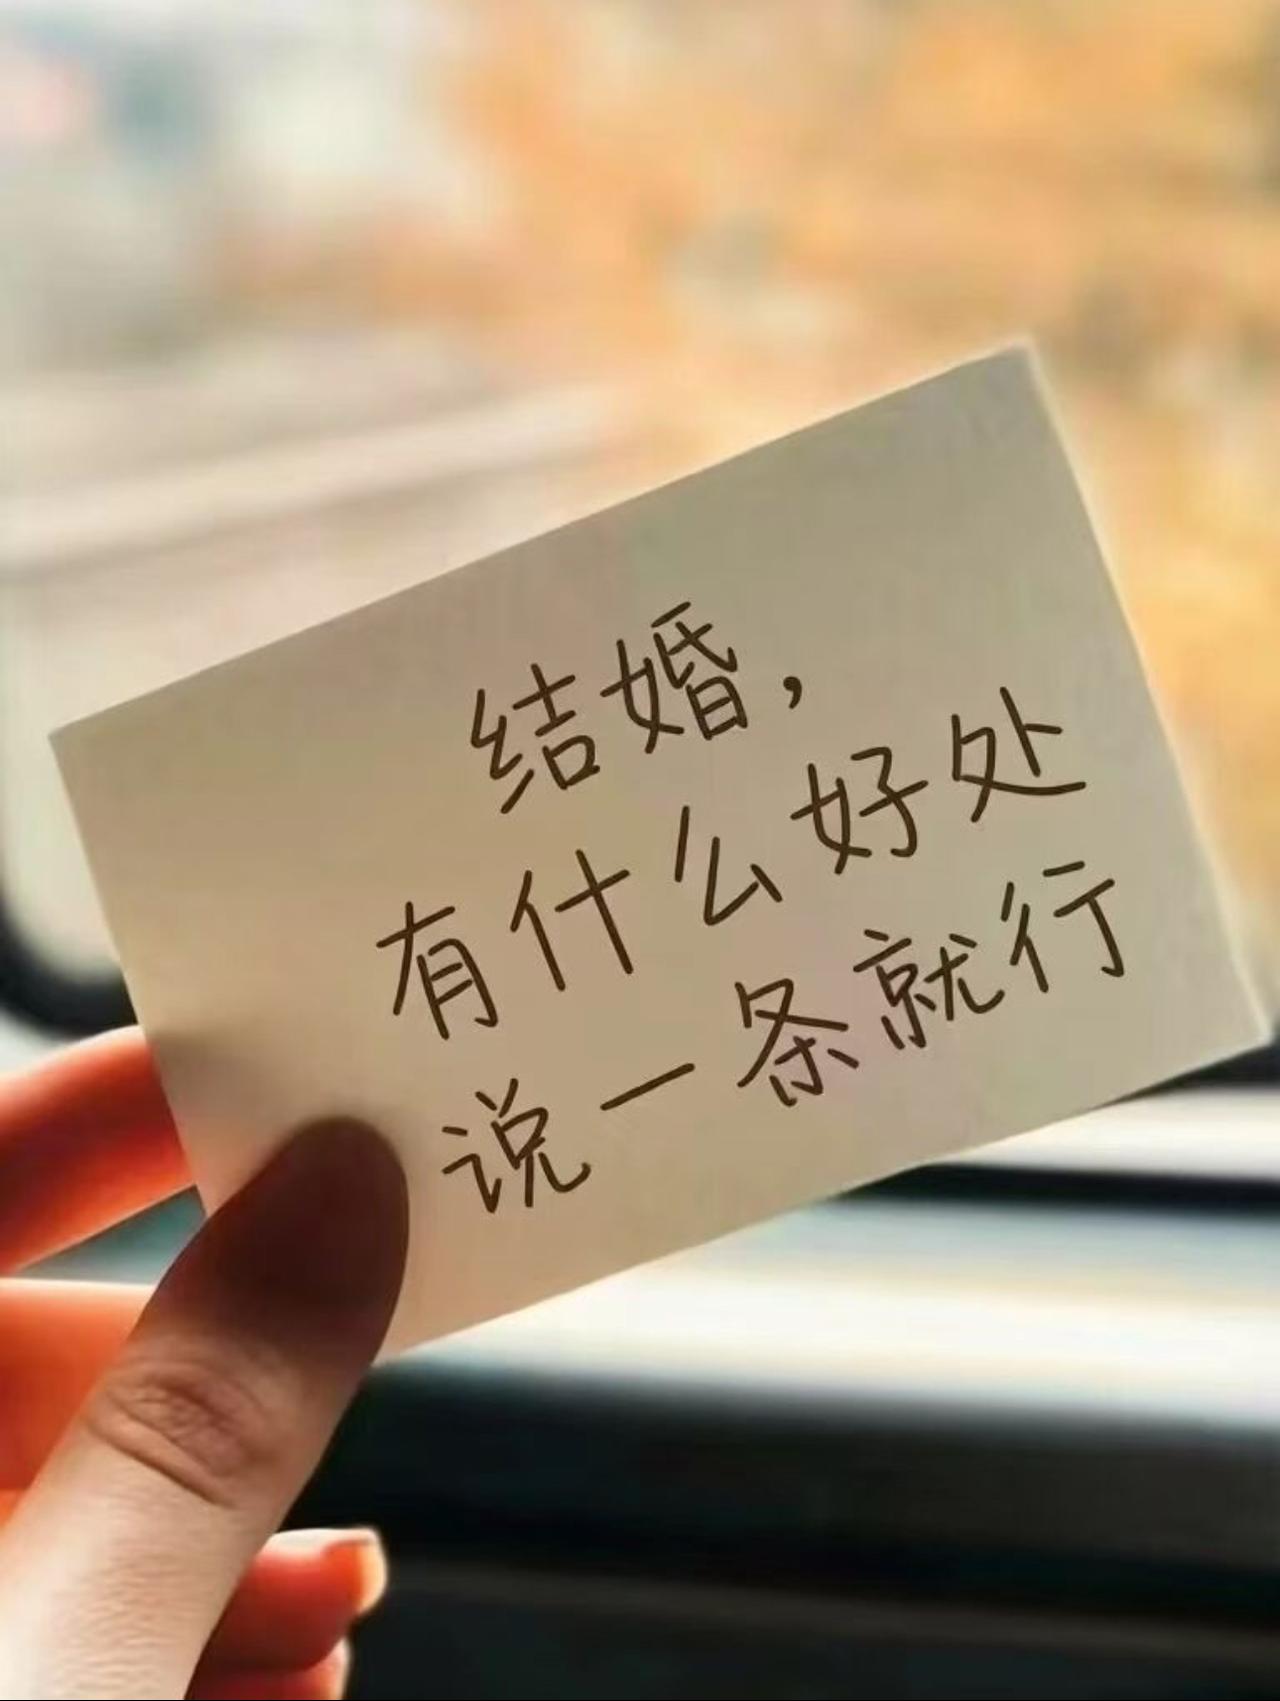 结婚，
有什么好处
说一条就行